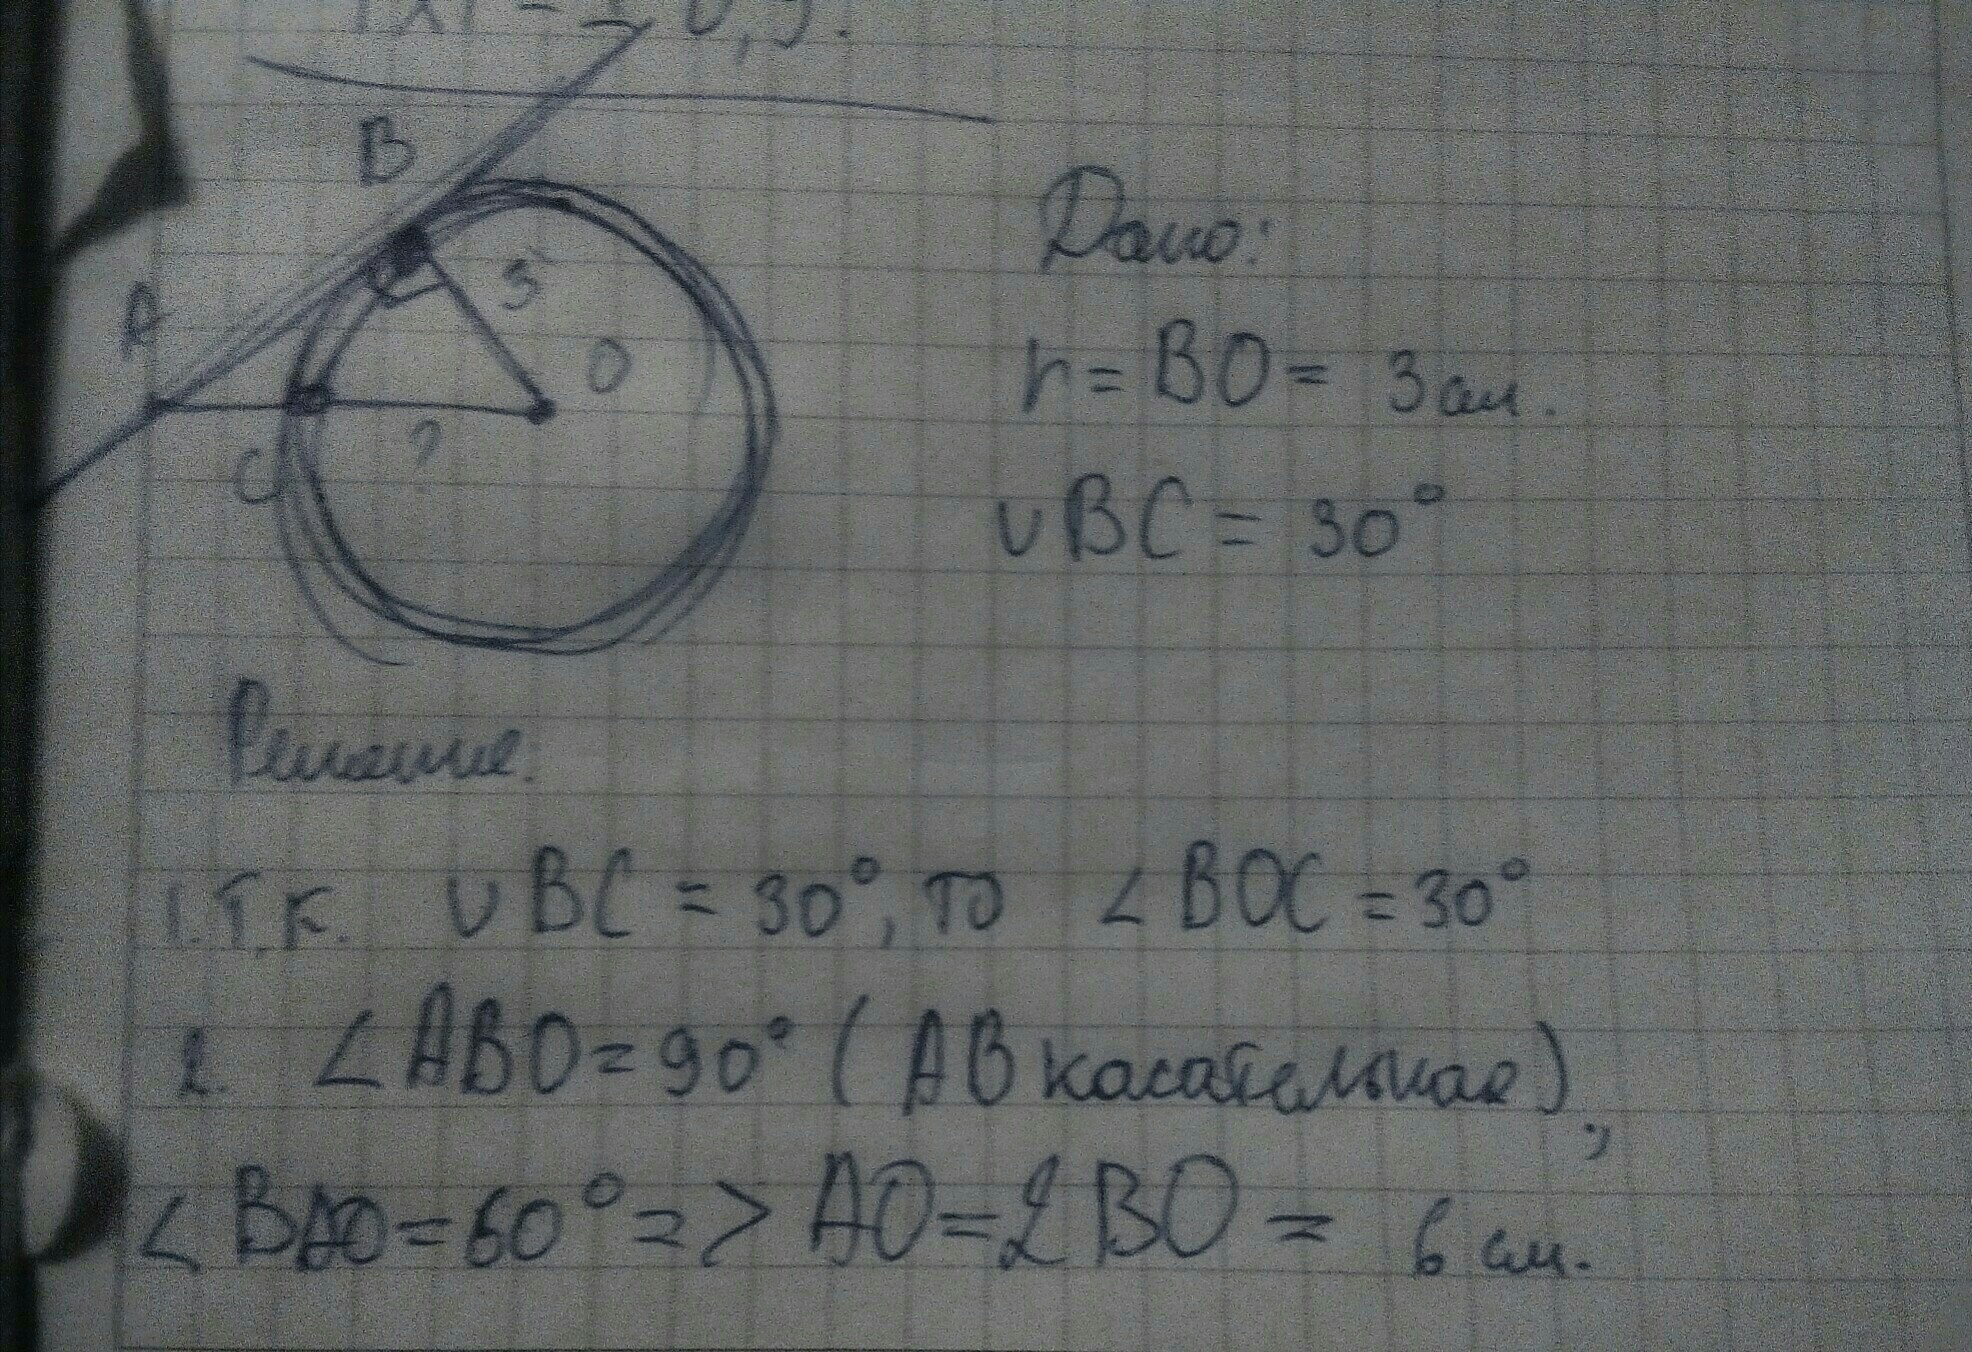 B
Дано:
3
A
O
r = BO = 3 см.
?
C
∪BC = 30°
Решение.
1. Т.К. ∪BC = 30°, то ∠BOC = 30°
2. ∠ABO = 90° (AB касательная),
∠BAO = 60° => AO = 2BO = 6 см.